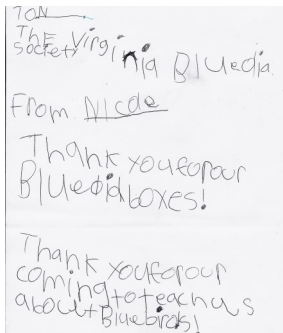 TON
The Virginia Bluedia
Society
From Nicole
Thank youforour
Bluedidboxes!
Thank youforour
comingtoteachus
aboutBluebirds!